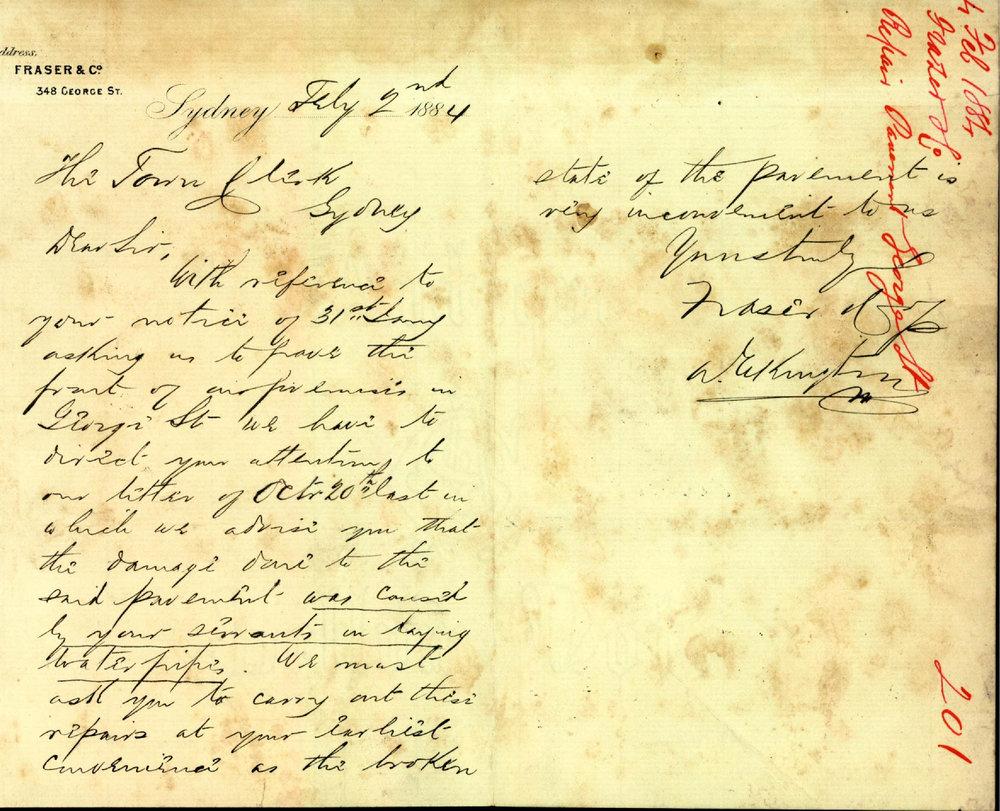 ddress.
FRASER & Co.
348 GEORGE ST.
Sydney Feby 2nd 1884
The Town Clerk
Sydney
Dear Sir,
With reference to
your notice of 31st Jany
asking us to pave the
front of our premises in
George St we have to
direct your attention to
our letter of Octr 20th last in
which we advise you that
the damage done to the
said pavement was caused
by your servants in laying
water pipes. We must
ask you to carry out these
repairs at your earliest
convenience as the broken
state of the pavement is
very inconvenient to us
Yours truly
Fraser & Co
4 Feb 1884
Frazer & Co
Repair Pavement George St
201